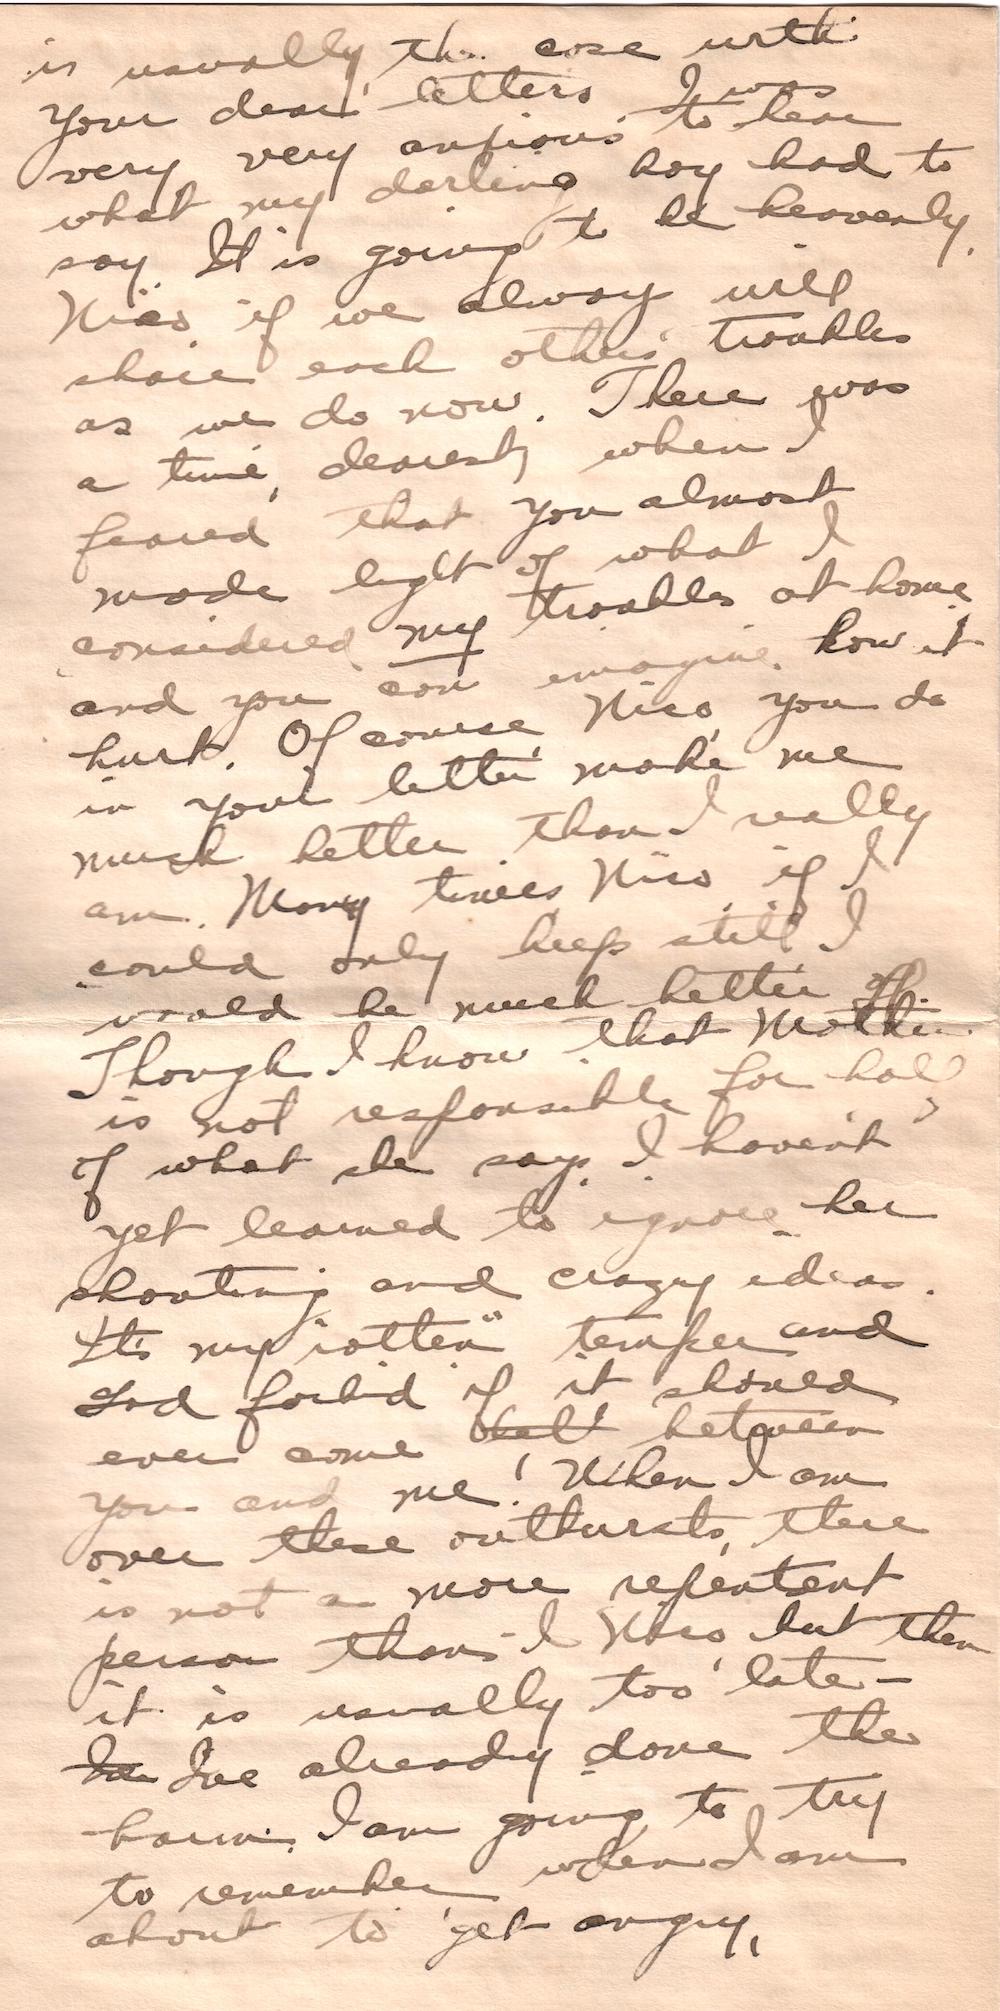 is usually the case with
your dear letters I was
very very anxious to hear
what my darling boy had to
say. It is going to be heavenly,
Niso if we always will
share each others troubles
as we do now. There was
a time, dearest, when I
feared that you almost
made light of what I
considered my troubles at home
and you can imagine how it
hurt. Of course Niso, you do
in your letter make me
much better than I really
am. Many times Niso, if I
could only keep still I
would be much better off.
Though I know that Mother
is not responsible for half
of what she says, I haven't
yet learned to ignore her
shouting and crazy ideas.
It's my "rotten" temper and
God forbid if it should
ever come between
you and me! When I am
over these outbursts, there
is not a more repentent
person than I Niso, but then
it is usually too late -
I've already done the
harm. I am going to try
to remember when I am
about to get angry,